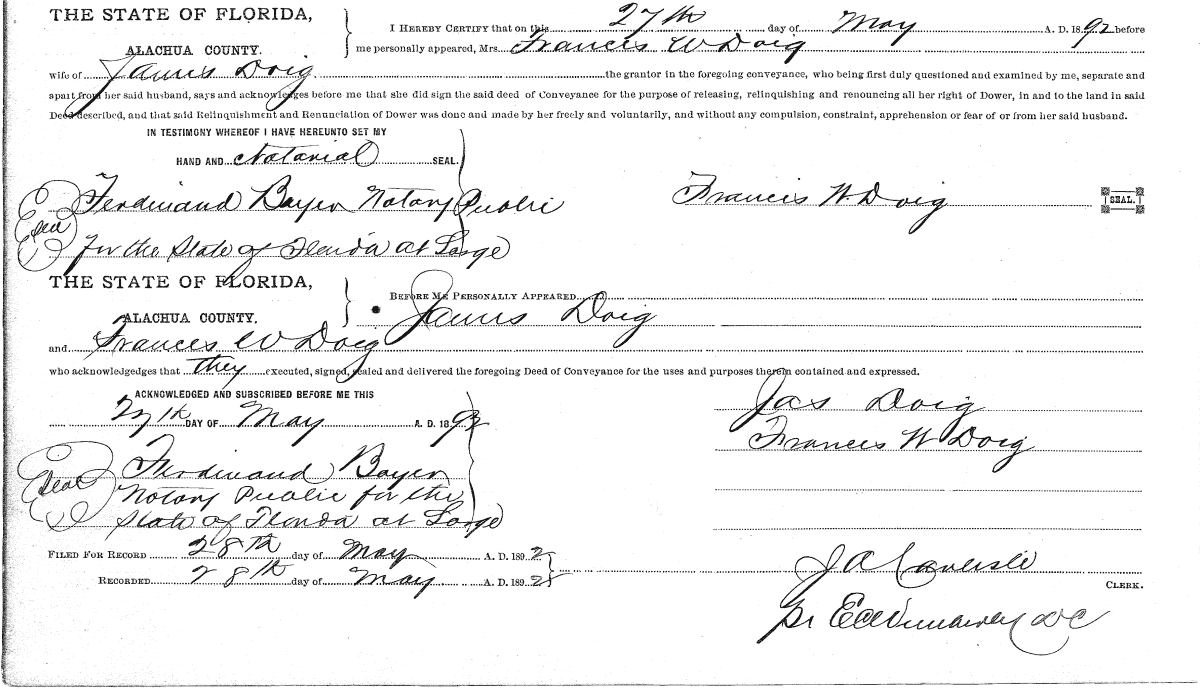 THE STATE OF FLORIDA,
I HEREBY CERTIFY that on this 27th day of May A. D. 1892 before
ALACHUA COUNTY.
me personally appeared, Mrs. Francis W Doig
wife of James Doig the grantor in the foregoing conveyance, who being first duly questioned and examined by me, separate and
apart from her said husband, says and acknowledges before me that she did sign the said deed of Conveyance for the purpose of releasing, relinquishing and renouncing all her right of Dower, in and to the land in said
Deed described, and that said Relinquishment and Renunciation of Dower was done and made by her freely and voluntarily, and without any compulsion, constraint, apprehension or fear of or from her said husband.
IN TESTIMONY WHEREOF I HAVE HEREUNTO SET MY
HAND AND Notarial SEAL.
Ferdinand Bayer Notary Public
Francis W. Doig SEAL.
for the State of Florida at Large
THE STATE OF FLORIDA,
BEFORE ME PERSONALLY APPEARED
ALACHUA COUNTY.
James Doig
and Frances W Doig
who acknowledgedges that they executed, signed, sealed and delivered the foregoing Deed of Conveyance for the uses and purposes therein contained and expressed.
ACKNOWLEDGED AND SUBSCRIBED BEFORE ME THIS
27th DAY OF May A. D. 1892
Jas Doig
Francis W Doig
Seal Ferdinand Bayer
Notary Public for the
State of Florida at Large
FILED FOR RECORD 28th day of May A. D. 1892
RECORDED 28th day of May A. D. 1892
J A Carlisle
CLERK.
DC